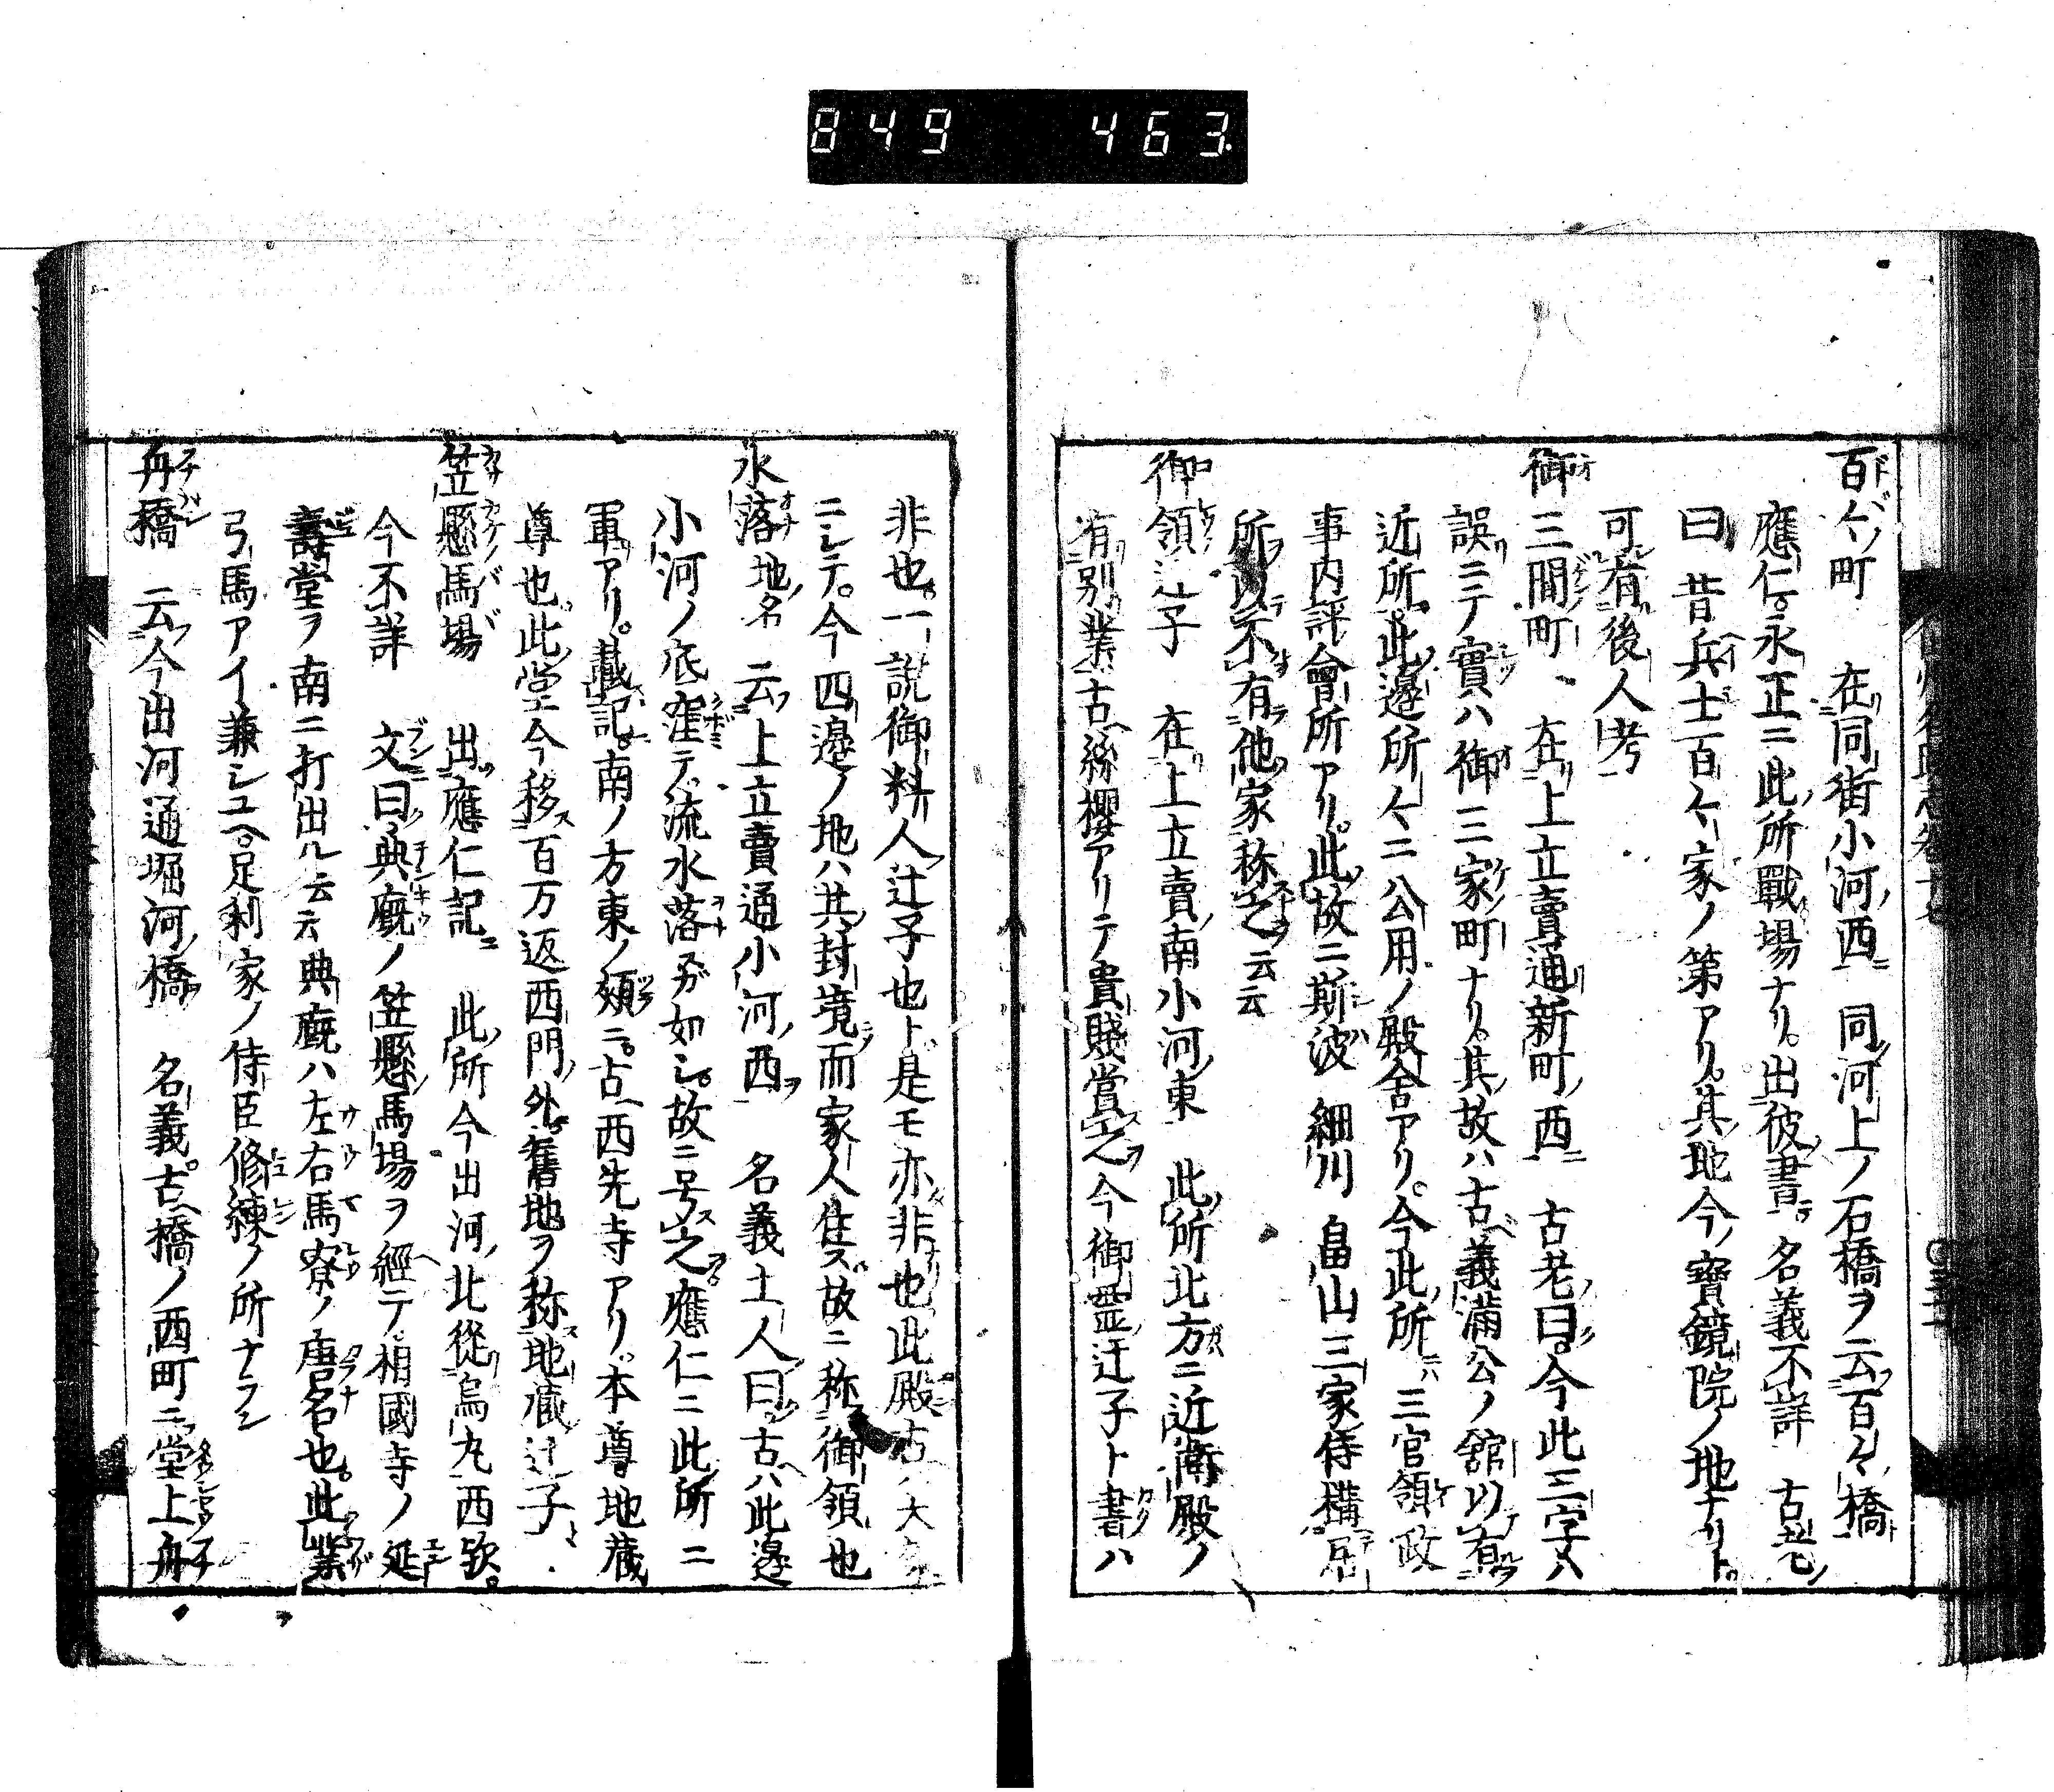 849 463
百々町 在同街小河西 同河上ノ石橋ヲ云百々橋
應仁永正ニ此所戰場ナリ出彼書 名義不詳 古老
曰 昔兵士百ケ家ノ第アリ其地今寶鏡院ノ地ナリト
可有後人考
御三間町 在上立賣通新町西 古老曰今此三字ハ
誤ニテ實ハ御三家町ナリ其故ハ古義滿公ノ舘以有
近所此邊所々ニ公用ノ殿舎アリ今此所 三官領政
事内評會所アリ此故ニ斯波 細川 畠山三家侍構居
所以不有他家称之云云
御領辻子 在上立賣南小河東 此所北方ニ近衞殿ノ
有別業古絲櫻アリテ貴賤賞之今御霊辻子ト書ハ
非也一説御料人辻子也ト是モ亦非也此殿古ノ大
ニシテ今四邊ノ地ハ其封境而家人住ス故ニ称御領也
水落地名 云上立賣通小河西 名義土人曰古ハ此邊
小河ノ底窪テ流水落ルガ如シ故ニ号之應仁ニ此所ニ
軍アリ載記南ノ方東ノ頬ニ古西先寺アリ本尊地蔵
尊也此堂今移百万返西門外舊地ヲ称地蔵辻子
笠懸馬場 出應仁記 此所今出河北從烏丸西歟
今不詳 文曰典廐ノ笠懸馬場ヲ經テ相國寺ノ延
壽堂ヲ南ニ打出ル云云典廐ハ左右馬寮ノ唐名也此業
弓馬アイ兼シユヘ足利家ノ侍臣修練ノ所ナラン
舟橋 云今出河通堀河橋 名義古橋ノ西町ニ堂上舟